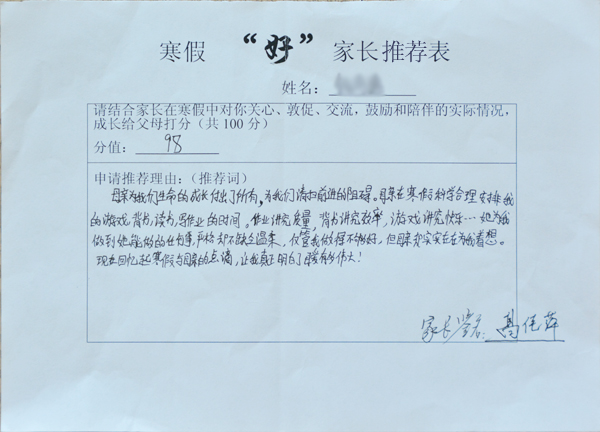 寒假 “好” 家长推荐表
姓名：
请结合家长在寒假中对你关心、敦促、交流，鼓励和陪伴的实际情况，
成长给父母打分（共 100 分）
分值： 98
申请推荐理由：（推荐词）
母亲为我们生命的成长付出了所有，为我们清扫前进的阻碍。母亲在寒假科学合理安排我
的游戏、背书、读书、写作业的时间。作业讲究质量，背书讲究效率，游戏讲究快乐…她为我
做到她能做的任何事，严格却不缺乏温柔，仅管我做得不够好，但母亲却实实在在为我着想。
现在回忆起寒假与母亲的点滴，让我真正明白了母爱有多伟大！
家长签名：高佳萍